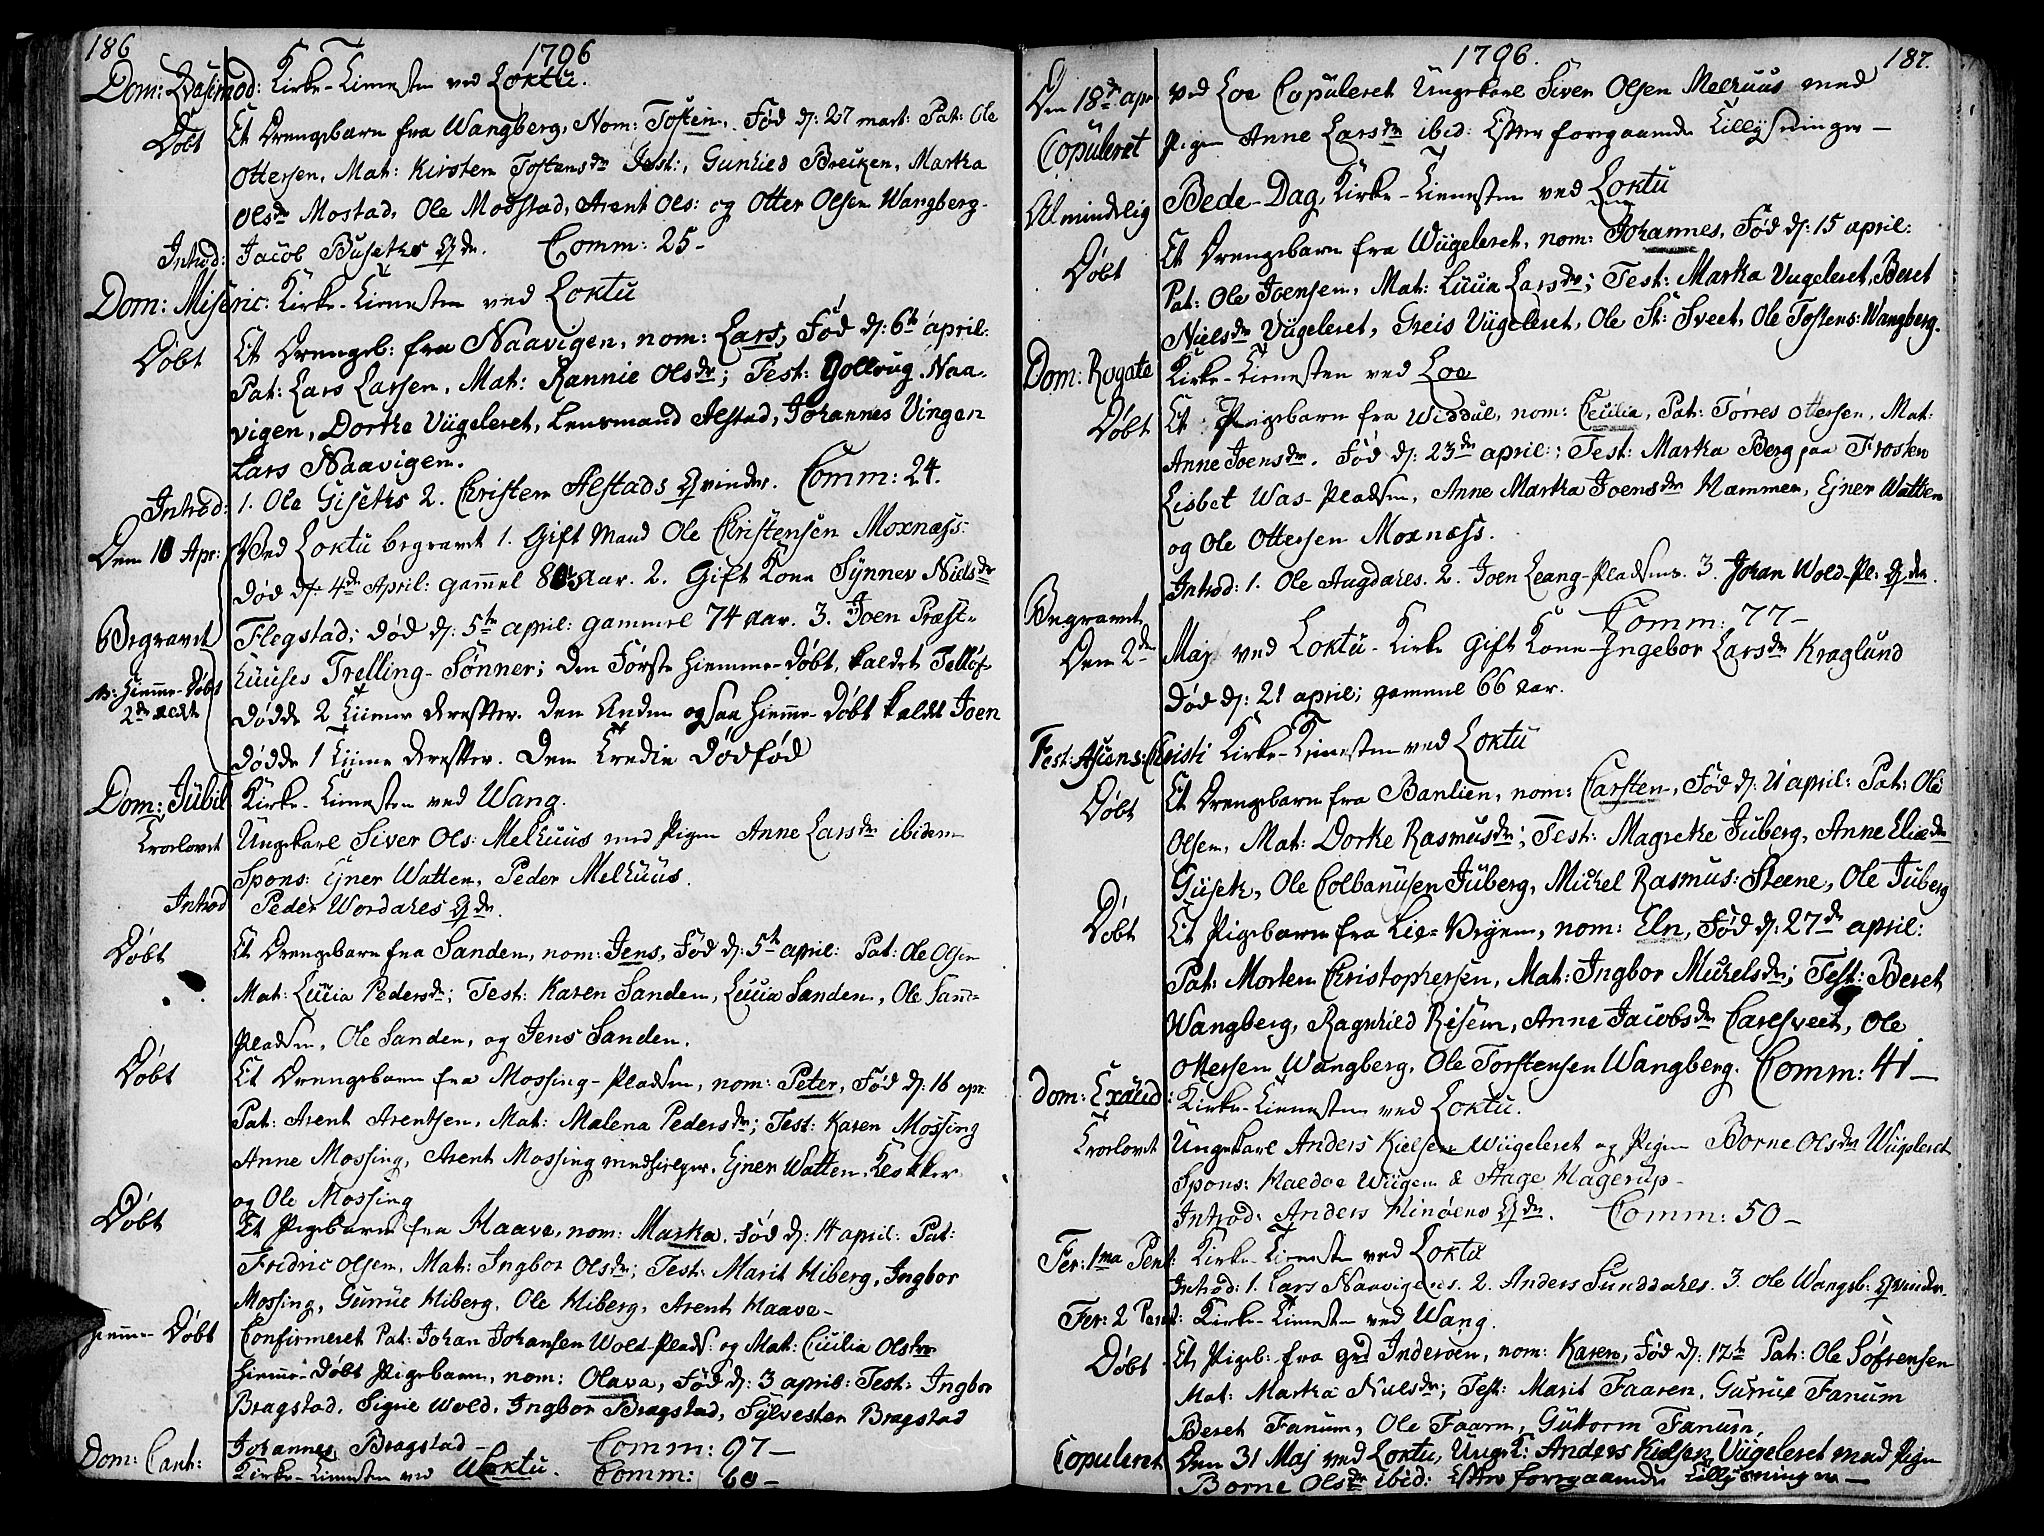 186
1796
Dom: Qvasimod: Kirke-Tienesten ved Loktu.
Døbt Et Drengebarn fra Wangberg, Nom: Tosten, Fød d: 27 mart: Pat: Ole
Ottersen, Mat: Kirsten Tostensdr Test:, Gunhild Breiken, Martha
Olsdr Mostad, Ole Mostad, Arent Ols: og Otter Olsen Wangberg.
Introd: Jacob Busethes Qde. Comm: 25-
Dom: Miseric: Kirke-Tienesten ved Loktu
Døbt Et Drengeb: fra Naavigen, nom: Lars, Fød d: 6te april:
Pat: Lars Larsen, Mat: Rannie Olsdr; Test: Gollaug Naa-
vigen, Dorthe Viigeleret, Lensmand Alstad, Johannes Vingen
Lars Naavigen.
Introd: 1. Ole Giseths 2. Christen Alstads Qvinder. Comm: 24.
Den 10 Apr: Ved Loktu begravet 1. Gift Mand Ole Christensen Moxnæss
død d: 4de April: gammel 80 Aar. 2. Gift Kone Synnev Nielsdr
Begravet Flegstad; død d: 5te april: gammel 74 aar. 3. Joen Præst-
N: Hiemme-Døbt huuses Trelling-Sønner; den Første hiemme-døbt, kaldet Tellef
2de rett dødde 2 Tiimer derefter. den Anden ogsaa hiemme-døbt kaldt Joen
dødde 1 Tiime derefter. Den Tredie dødfød
Dom: Jubil Kirke-Tienesten ved Wang.
Trolovet Ungekarl Siver Ols: Melhuus med Pigen Anne Larsdr ibidem
Spons: Ejner Watten, Peder Melhuus.
Introd Peder Wordahles Qde.
Døbt Et Drengebarn fra Sanden, nom: Jens, Fød d: 5te april: Pat: Ole Olsen
Mat: Lucia Pedersdr; Test: Karen Sanden, Lucia Sanden, Ole Sand-
Pladsen, Ole Sanden, og Jens Sanden.
Døbt Et Drengebarn fra Mossing-Pladsen, nom: Peter, Fød d: 16 apr.
Pat: Arent Arentsen, Mat: Malena Pedersdr; Test: Karen Mossing
Anne Mossing, Arent Mossing medhielper, Ejner Watten Klokker
og Ole Mossing
Døbt Et Pigebarn fra Haave, nom: Martha, Fød d: 14 april: Pat:
Fridric Olsen, Mat: Ingbor Olsdr; Test: Marit Hiberg, Ingbor
Mossing, Gurrue Hiberg, Ole Hiberg, Arent Haave-
Hiemme-Døbt Confirmeret Pat: Johan Johansen Wold-Plads: og Mat: Cicilia Olsdr
hiemme-døbt Pigebarn, nom: Olava, Fød d: 3 april: Test: Ingbor
Bragstad, Sigrie Wold, Ingbor Bragstad, Sylvester Bragstad
Johannes Bragstad- Comm: 97-
Dom: Cant: Kirke-Tienesten ved Loktu. Comm: 60-
1796.
187.
Den 18de apr ved Loe Copuleret Ungekarl Siver Olsen Melhuus med
Copuleret Pigen Anne Larsdr ibid: Efter foregaaende Tillysninger-
Almindelig Bede-Dag, Kirke-Tienesten ved Loktu
Døbt Et Drengebarn fra Wiigeleret, nom: Johannes, Fød d: 15 april:
Pat: Ole Joensen, Mat: Lucia Larsdr; Test: Martha Viigeleret, Beret
Nielsdr Viigeleret, Greis Viigeleret, Ole St: Sveet, Ole Tostens: Wangberg.
Dom: Rogate Kirke-Tienesten ved Loe
Døbt Et Pigebarn fra Widdul, nom: Cecilia, Pat: Torres Ottersen, Mat:
Anne Joensdr. Fød d: 23de april:; Test: Martha Berg paa Frosten
Lisbet Was-Pladsen, Anne Martha Joensdr Hammer, Ejner Watten
og Ole Ottersen Moxnæss.
Introd: 1. Ole Augdahles. 2. Joen Leang-Pladsens. 3. Johan Wold-Pl. Qde.
Comm: 77-
Begravet
Den 2de Maj ved Loktu-Kirke Gift Kone Ingebor Larsdr Kraglund
død d: 21 april; gammel 66 aar.
Fest: Ascens: Christi Kirke-Tienesten ved Loktu
Døbt Et Drengebarn fra Banlien, nom: Carsten, Fød d: 21 april: Pat: Ole
Olsen, Mat: Dorthe Rasmusdr; Test: Magrethe Juberg, Anne Eliædr
Giiseth, Ole Colbanusen Juberg, Michel Rasmus: Steene, Ole Juberg
Døbt Et Pigebarn fra Lie-Vejen, nom: Eln, Fød d: 27de april:
Pat: Morten Christophersen, Mat: Ingbor Michelsdr; Test: Beret
Wangberg, Ragnhild Risem, Anne Jacobsdr Carlsveet, Ole
Ottersen Wangberg, Ole Torstensen Wangberg. Comm: 41-
Dom: Exaud: Kirke-Tienesten ved Loktu.
Trolovet Ungekarl Anders Kielsen Wiigeleret og Pigen Borne Olsdr Wiigleret
Spons: Haedoe Wiigen & Hage Hagerup-
Introd: Anders Hinøens Qde. Comm: 50-
Fer: 1ma Pent: Kirke-Tienesten ved Loktu
Introd: 1. Lars Naavigens. 2. Anders Sunddahles. 3. Ole Wangb: Qvinder.
Fer: 2 Pent: Kirke-Tienesten ved Wang.
Døbt Et Pigeb: fra Inderøen, nom: Karen, Fød d: 17te Pat: Ole Søfrensen
Mat: Martha Nielsdr; Test: Marit Faaren, Gurrue Fanum
Beret Fanum, Ole Faarn, Guttorm Fanum,
Copuleret Den 31 Maj ved Loktu, Ungk: Anders Kielsen Viigeleret med Pigen
Borne Olsdr ibid: Efter foregaaende Tillysninger-